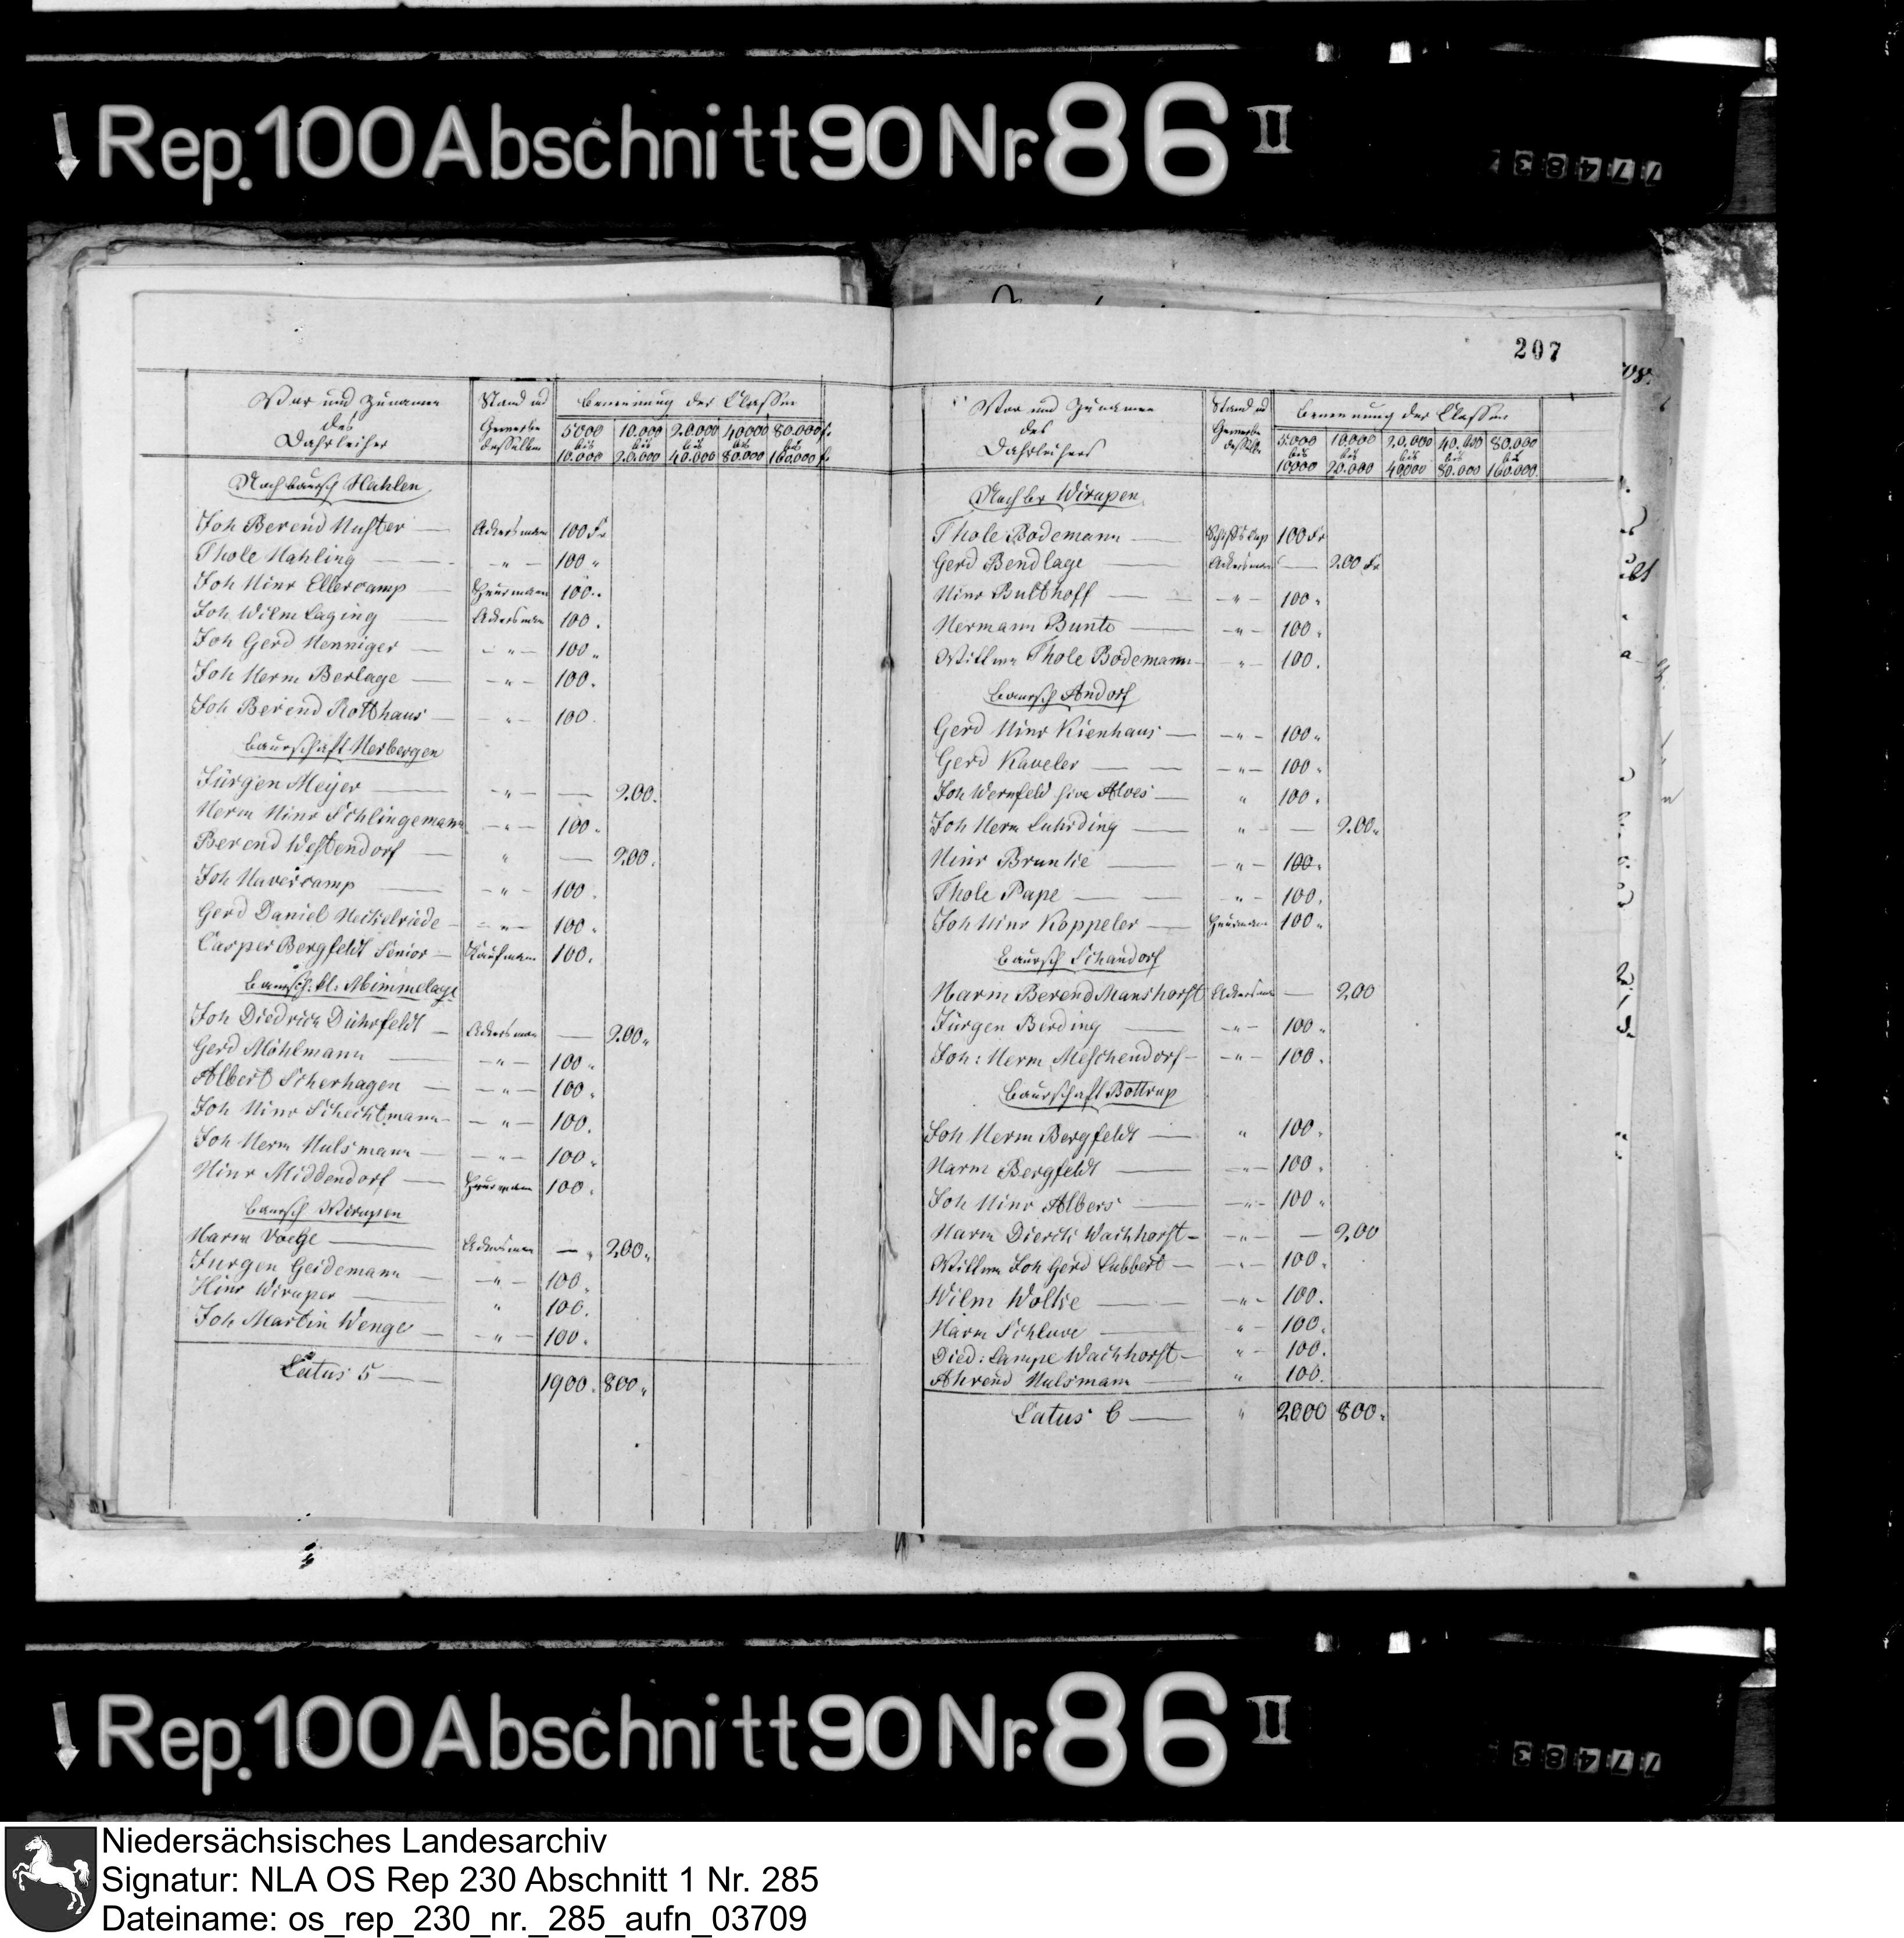 Rep. 100 Abschnitt 90 Nr. 86 II
77483
207
Vor und Zunamen des Dahrleiher
Stand und Gewerbe desselben
Benennung der Classen
5000 bis 10.000
10.000 bis 20.000
20.000 bis 40.000
40000 bis 80.000
80.000 bis 160.000 fr
Noch Baursch Hahlen
Joh Berend Nuster — Ackersmann 100 Fr
Thole Hahling — " — 100 "
Joh Hinr Ellercamp — Heuermann 100 "
Joh Wilm Laging — Ackersman 100 .
Joh Gerd Henniger — " — 100 "
Joh Herm Berlage — " — 100 .
Joh Berend Rotthaus — " — 100 .
Baurschaft Herbergen
Jürgen Meyer — " — — 200 .
Herm Hinr Schlingemann — " — 100 "
Berend Westendorf — " — 200 .
Joh Havercamp — " — 100 .
Gerd Daniel Heckelriede — " — 100 "
Casper Bergfeldt Senior — Kaufmann 100 .
Baursch: kl: Mimmelage
Joh Diedrich Dührfeldt — Ackersman — 200 "
Gerd Möhlmann — " — 100 "
Albert Scherhagen — " — 100 .
Joh Hinr Schechtmann — " — 100 .
Joh Herm Hulsmann — " — 100 "
Hinr Middendorf — Heuermann 100 .
Baursch Wirupen
Harm Voege — Ackersman — " 200 "
Jurgen Geidemann — " — 100 "
Hinr Wiruper — " 100 .
Joh Martin Wenge — " — 100 .
Latus 5 — 1900 . 800 "
Vor und Zunamen des Dahrleihers
Stand und Gewerbe desselb
Benennung der Classen
5000 bis 10000
10.000 bis 20.000
20,000 bis 40000
40.000 bis 80.000
80.000 bis 160.000.
Noch br Wirupen
Thole Bodemann — Schiffscap 100 Fr
Gerd Bendlage — Ackersman — 200 Fr
Hinr Bulthoff — " — 100 "
Hermann Bunte — " — 100 "
Willm Thole Bodemann — " — 100 .
Baursch Andorf
Gerd Hinr Kienhaus — " — 100 "
Gerd Kaveler — " — 100 "
Joh Wernfeld sive Alves — " 100 .
Joh Herm Luhrding — " — 200 "
Hinr Bruntie — " — 100 .
Thole Pape — " — 100 .
Joh Hinr Koppeler — Heuermann 100 "
Baursch Schandorf
Harm Berend Manshorst Ackersman — 200
Jürgen Berding — " — 100 "
Joh: Herm Meschendorf — " — 100 .
Baurschaft Bottrup
Joh Herm Bergfeldt — " 100 .
Harm Bergfeldt — " — 100 .
Joh Hinr Albers — " — 100 "
Harm Dierck Wachhorst — " — — 200
Willm Joh Gerd Lubbert — " — 100 "
Wilm Woltie — " — 100 .
Harm Schluve — " — 100 .
Died: Lampe Wachhorst — " — 100 .
Ahrend Hulsmann — " 100 .
Latus 6 — " 2000 800 .
Rep. 100 Abschnitt 90 Nr. 86 II
77483
Niedersächsisches Landesarchiv
Signatur: NLA OS Rep 230 Abschnitt 1 Nr. 285
Dateiname: os_rep_230_nr._285_aufn_03709